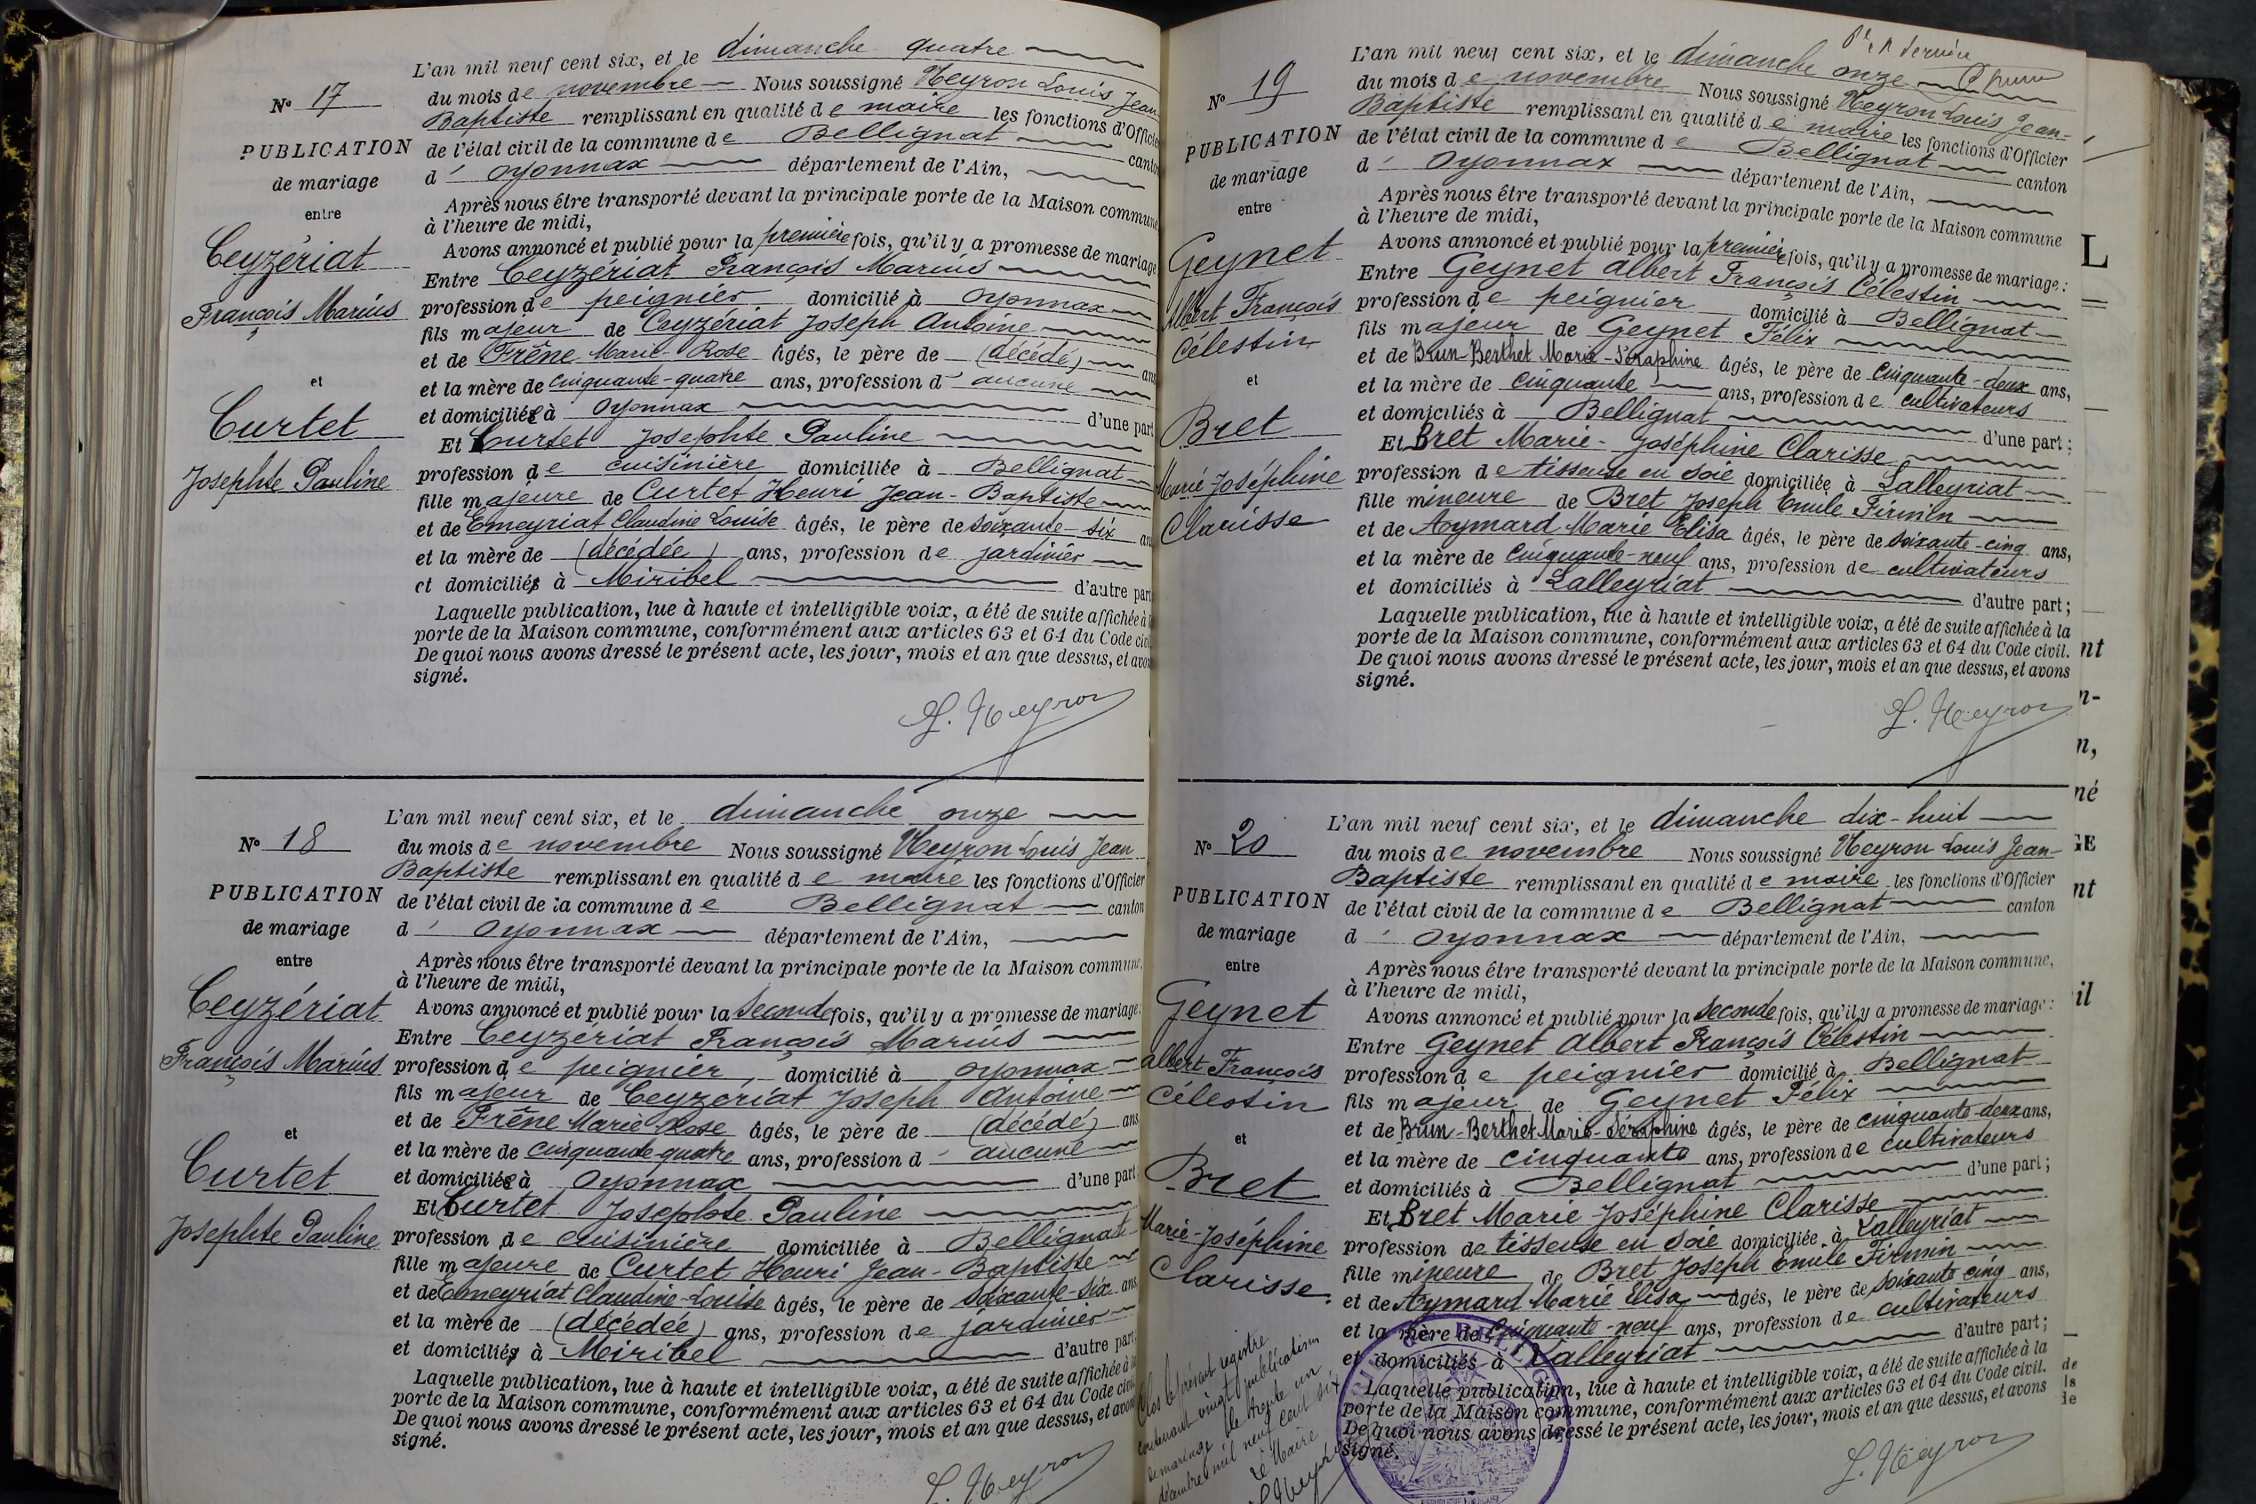 L'an mil neuf cent six, et le dimanche quatre
N° 17
du mois de novembre Nous soussigné Neyron Louis Jean
Baptiste remplissant en qualité de maire les fonctions d'Officier
PUBLICATION
de l'état civil de la commune de Bellignat canton
de mariage
d' Oyonnax département de l'Ain,
entre
Après nous être transporté devant la principale porte de la Maison commune
à l'heure de midi,
Ceyzériat
Avons annoncé et publié pour la première fois, qu'il y a promesse de mariage
Entre Ceyzériat François Marius
François Marius
profession de peignier domicilié à Oyonnax
fils majeur de Ceyzériat Joseph Antoine
et de Frêne Marie-Rose âgés, le père de (décédé) ans
et
et la mère de cinquante-quatre ans, profession d' aucune
et domiciliée à Oyonnax d'une part
Curtet
Et Curtet Josephte Pauline
Josephte Pauline
profession de cuisinière domiciliée à Bellignat
fille majeure de Curtet Henri Jean-Baptiste
et de Emeyriat Claudine Louise âgés, le père de soixante-six an
et la mère de (décédée) ans, profession de jardinier
et domiciliés à Miribel d'autre part
Laquelle publication, lue à haute et intelligible voix, a été de suite affichée à la
porte de la Maison commune, conformément aux articles 63 et 64 du Code civil
De quoi nous avons dressé le présent acte, les jour, mois et an que dessus, et avons
signé.
L. Neyron
L'an mil neuf cent six, et le dimanche onze
N° 18
du mois de novembre Nous soussigné Neyron Louis Jean
Baptiste remplissant en qualité de maire les fonctions d'Officier
PUBLICATION
de l'état civil de la commune de Bellignat canton
de mariage
d' Oyonnax département de l'Ain,
entre
Après nous être transporté devant la principale porte de la Maison commune,
à l'heure de midi,
Ceyzériat
Avons annoncé et publié pour la seconde fois, qu'il y a promesse de mariage:
Entre Ceyzériat François Marius
François Marius
profession de peignier, domicilié à Oyonnax
fils majeur de Ceyzériat Joseph Antoine
et de Frêne Marie Rose âgés, le père de (décédé) ans
et
et la mère de cinquante-quatre ans, profession d' aucune
et domiciliée à Oyonnax d'une part
Curtet
Et Curtet Josephte Pauline
Josephte Pauline
profession de cuisinière domiciliée à Bellignat
fille majeure de Curtet Henri Jean-Baptiste
et de Emeyriat Claudine-Louise âgés, le père de soixante-six ans
et la mère de (décédée) ans, profession de jardinier
et domiciliés à Miribel d'autre part
Laquelle publication, lue à haute et intelligible voix, a été de suite affichée à la
porte de la Maison commune, conformément aux articles 63 et 64 du Code civil
De quoi nous avons dressé le présent acte, les jour, mois et an que dessus, et avons
signé.
L. Neyron
L'an mil neuf cent six, et le dimanche onze
N° 19
du mois de novembre Nous soussigné Neyron Louis Jean-
Baptiste remplissant en qualité de maire les fonctions d'Officier
PUBLICATION
de l'état civil de la commune de Bellignat canton
de mariage
d' Oyonnax département de l'Ain,
entre
Après nous être transporté devant la principale porte de la Maison commune
à l'heure de midi,
Geynet
Avons annoncé et publié pour la première fois, qu'il y a promesse de mariage:
Entre Geynet Albert François Célestin
Albert François
profession de peignier domicilié à Bellignat
Célestin
fils majeur de Geynet Félix
et de Brun-Berthet Marie-Séraphine âgés, le père de cinquante-deux ans,
et
et la mère de cinquante ans, profession de cultivateurs
et domiciliés à Bellignat d'une part;
Bret
Et Bret Marie-Joséphine Clarisse
Marie Joséphine
profession de tisseuse en soie domiciliée à Lalleyriat
Clarisse
fille mineure de Bret Joseph Emile Firmin
et de Aymard Marie Elisa âgés, le père de soixante-cinq ans,
et la mère de cinquante-neuf ans, profession de cultivateurs
et domiciliés à Lalleyriat d'autre part;
Laquelle publication, lue à haute et intelligible voix, a été de suite affichée à la
porte de la Maison commune, conformément aux articles 63 et 64 du Code civil.
De quoi nous avons dressé le présent acte, les jour, mois et an que dessus, et avons
signé.
L. Neyron
L'an mil neuf cent six, et le dimanche dix-huit
N° 20
du mois de novembre Nous soussigné Neyron Louis Jean-
Baptiste remplissant en qualité de maire les fonctions d'Officier
PUBLICATION
de l'état civil de la commune de Bellignat canton
de mariage
d' Oyonnax département de l'Ain,
entre
Après nous être transporté devant la principale porte de la Maison commune,
à l'heure de midi,
Geynet
Avons annoncé et publié pour la seconde fois, qu'il y a promesse de mariage:
Entre Geynet Albert François Célestin
Albert François
profession de peignier domicilié à Bellignat
Célestin
fils majeur de Geynet Félix
et de Brun-Berthet Marie-Séraphine âgés, le père de cinquante-deux ans,
et
et la mère de cinquante ans, profession de cultivateurs
et domiciliés à Bellignat d'une part;
Bret
Et Bret Marie Joséphine Clarisse
Marie-Joséphine
profession de tisseuse en soie domiciliée à Lalleyriat
Clarisse.
fille mineure de Bret Joseph Emile Firmin
et de Aymard Marie Elisa âgés, le père de soixante cinq ans,
et la mère de cinquante-neuf ans, profession de cultivateurs
et domiciliés à Lalleyriat d'autre part;
Laquelle publication, lue à haute et intelligible voix, a été de suite affichée à la
porte de la Maison commune, conformément aux articles 63 et 64 du Code civil.
De quoi nous avons dressé le présent acte, les jour, mois et an que dessus, et avons
signé.
L. Neyron
Clos le présent registre
contenant vingt publications
de mariage le trente un
décembre mil neuf cent six
Le Maire
L. Neyron
BELLIGNAT